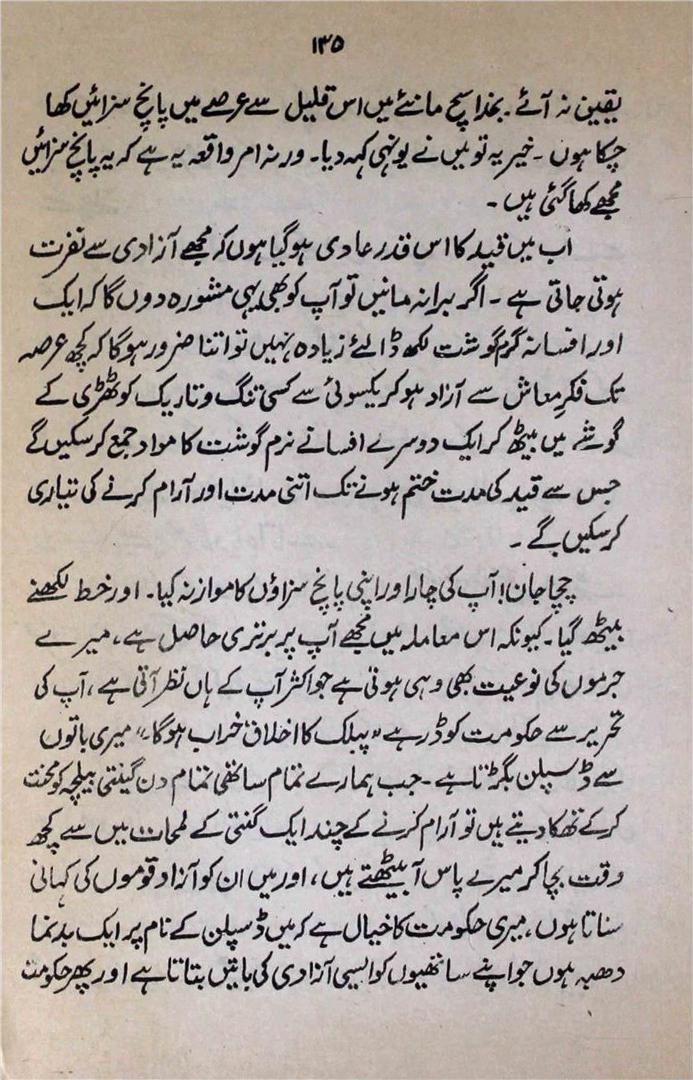 ۱۳۵
یقین نہ آئے۔ بخدا سچ مانئے میں اس قلیل سے عرصے میں پانچ سزائیں کھا
چکا ہوں۔ خیر یہ تو میں نے یونہی کہہ دیا۔ ورنہ امر واقعہ یہ ہے کہ یہ پانچ سزائیں
مجھے کھا گئی ہیں۔
اب میں قید کا اس قدر عادی ہو گیا ہوں کہ مجھے آزادی سے نفرت
ہوتی جاتی ہے۔ اگر برا نہ مانیں تو آپ کو بھی یہی مشورہ دوں گا کہ ایک
اور افسانہ گرم گوشت لکھ ڈالئے زیادہ نہیں تو اتنا ضرور ہوگا کہ کچھ عرصہ
تک فکرِ معاش سے آزاد ہو کر یکسوئی سے کسی تنگ و تاریک کوٹھڑی کے
گوشے میں بیٹھ کر ایک دوسرے افسانے نرم گوشت کا مواد جمع کر سکیں گے
جس سے قید کی مدت ختم ہونے تک اتنی مدت اور آرام کرنے کی تیاری
کر سکیں گے۔
چچا جان! آپ کی چار اور اپنی پانچ سزاؤں کا موازنہ کیا۔ اور خط لکھنے
بیٹھ گیا۔ کیونکہ اس معاملہ میں مجھے آپ پر برتری حاصل ہے، میرے
جرموں کی نوعیت بھی وہی ہوتی ہے جو اکثر آپ کے ہاں نظر آتی ہے، آپ کی
تحریر سے حکومت کو ڈر ہے "پبلک کا اخلاق خراب ہوگا۔" میری باتوں
سے ڈسپلن بگڑتا ہے۔ جب ہمارے تمام ساتھی تمام دن گینتی بیلچہ کو محنت
کر کے تھکا دیتے ہیں تو آرام کرنے کے چند ایک گنتی کے لمحات میں سے کچھ
وقت بچا کر میرے پاس آ بیٹھتے ہیں، اور میں ان کو آزاد قوموں کی کہانی
سناتا ہوں، میری حکومت کا خیال ہے کہ میں ڈسپلن کے نام پر ایک بدنما
دھبہ ہوں جو اپنے ساتھیوں کو ایسی آزادی کی باتیں بتاتا ہے اور پھر حکومت